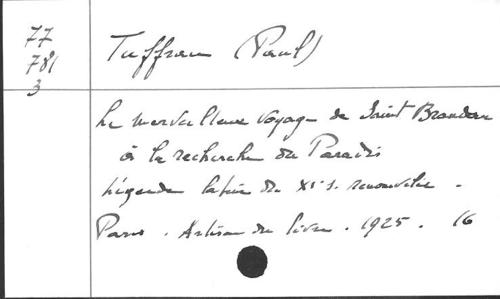 77
781
3
Tuffrau (Paul)
Le merveilleux voyage de Saint Brandan
à la recherche du Paradis
Légende latine du XIe s. renouvelée.
Paris. Artisan du livre. 1925. 16